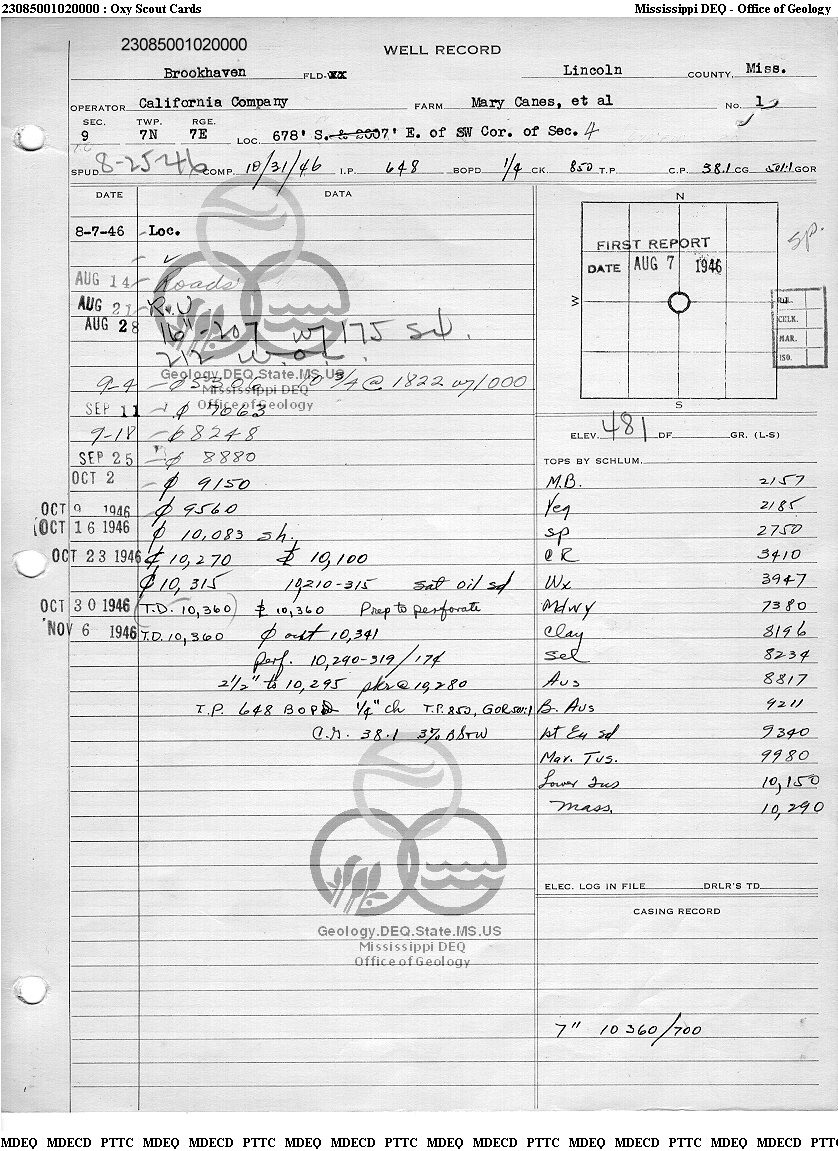 23085001020000 : Oxy Scout Cards Mississippi DEQ - Office of Geology
23085001020000
WELL RECORD
Brookhaven FLD-XX Lincoln COUNTY, Miss.
OPERATOR California Company FARM Mary Canes, et al No. 1
SEC. TWP. RGE.
9 7N 7E LOC. 678' S. & 2007' E. of SW Cor. of Sec. 4
SPUD 8-25-46 COMP. 10/31/46 I.P. 648 BOPD 1/4 CK. 850 T.P. C.P. 38.1 CG 501:1 GOR
DATE DATA
N
W
S
FIRST REPORT
DATE AUG 7 1946
CELK.
MAR.
ISO.
sp.
8-7-46 - Loc.
AUG 14 - Roads
AUG 21 - R.U
AUG 28 16"-207 w/175 sd.
212 W.O.C.
Geology.DEQ.State.MS.US
Mississippi DEQ
Office of Geology
9-4 10 3/4 @ 1822 w/1000
SEP 11 - ₵ 7663
9-18 - 68248
SEP 25 - ₵ 8880
OCT 2 - ₵ 9150
OCT 9 1946 - ₵ 9560
OCT 16 1946 ₵ 10,083 sh.
OCT 23 1946 ₵ 10,270 ₵ 10,100
₵ 10,315 10,210-315 sat oil sd
OCT 30 1946 T.D. 10,360 ₵ 10,360 Prep to perforate
NOV 6 1946 T.D. 10,360 ₵ out 10,341
Perf. 10,290-319/174
2 1/2" to 10,295 pkr @ 10,280
T.P. 648 BOPD 1/4" ch T.P. 850, GOR 501:1
C.G. 38.1 3% BS+W
ELEV. 481 DF. GR. (L-S)
TOPS BY SCHLUM.
M.B. 2157
Yeg 2185
sp 2750
CR 3410
Wx 3947
Mdwy 7380
Clay 8196
Sel 8234
Aus 8817
B. Aus 9211
1st Eu sd 9340
Mar. Tus. 9980
Lower Tus 10,150
Mass. 10,290
ELEC. LOG IN FILE DRLR'S TD
CASING RECORD
7" 10360/700
Geology.DEQ.State.MS.US
Mississippi DEQ
Office of Geology
MDEQ MDECD PTTC MDEQ MDECD PTTC MDEQ MDECD PTTC MDEQ MDECD PTTC MDEQ MDECD PTTC MDEQ MDECD PTTC